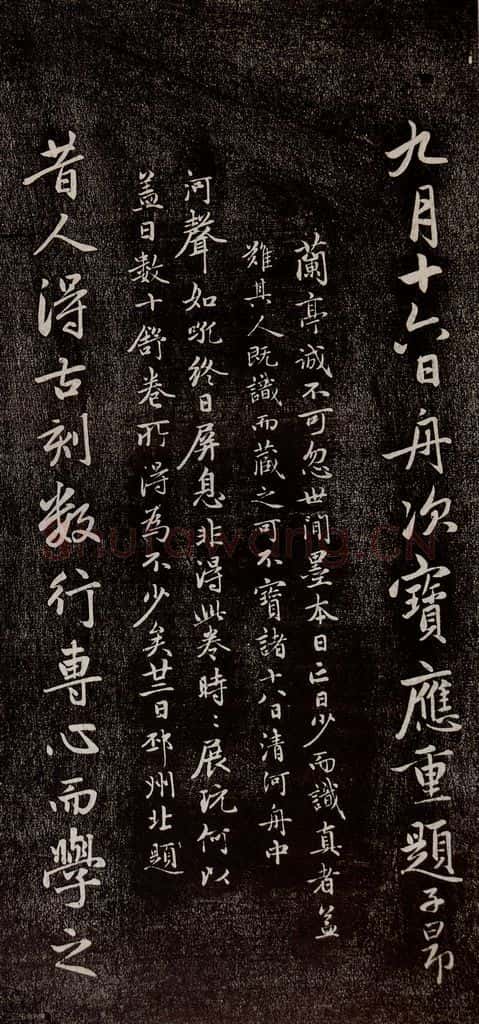 九月十六日舟次寶應重題子昂
蘭亭誠不可忽世間墨本日亡日少而識真者蓋
難其人既識而藏之可不寶諸十八日清河舟中
河聲如吼終日屏息非得此卷時〻展玩何以
蓋日數十舒卷所得為不少矣廿二日邳州北題
昔人得古刻數行專心而學之
shufawang.CN